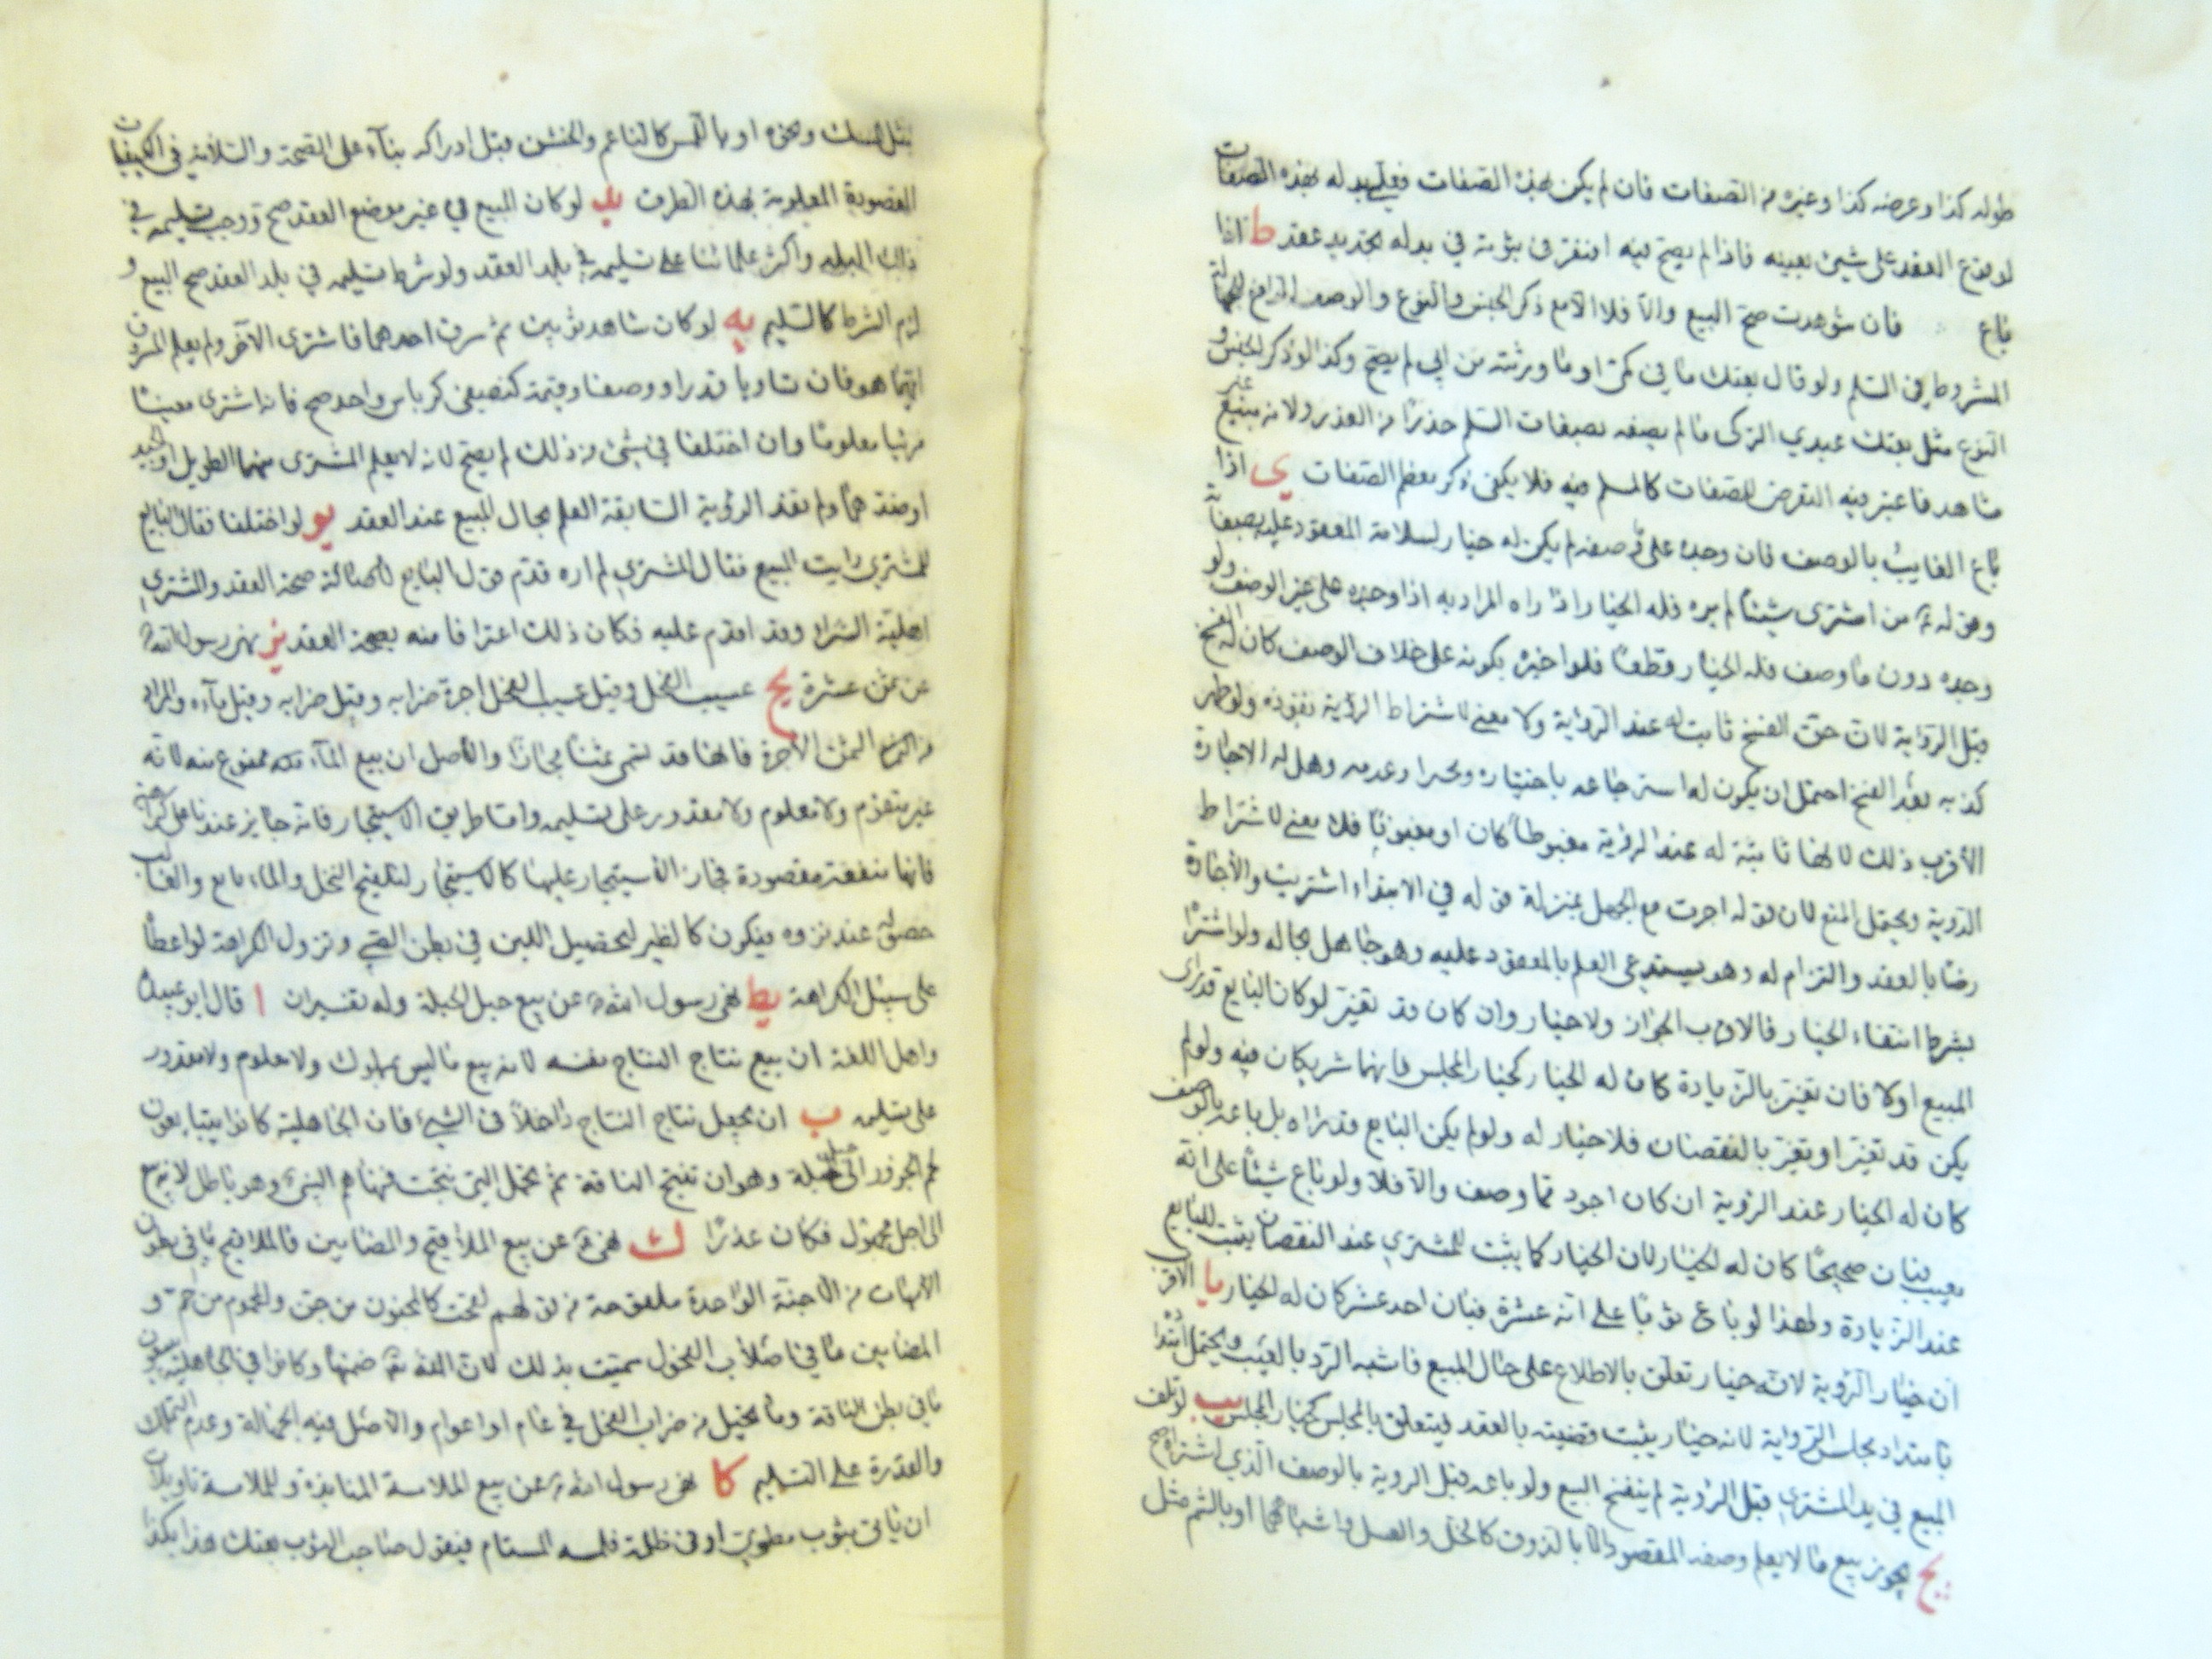 طوله كذا وعرضه كذا وغيره من الصفات فان لم يكن بهذه الصفات فعلي بدله بهذه الصفات
لوقوع العقد على شيئ بعينه فاذا لم يصح فيه افتقر في ثبوته في بدله بتجديد عقد ط اذا
باع فان شوهدت صح البيع والا فلا الا مع ذكر الجنس والنوع والوصف الرافع للجهالة
المشروط في السلم ولو قال بعتك ما في كمي او ما ورثته من ابي لم يصح وكذا لو ذكر الجنس و
النوع مثل بعتك عبدي التركي ما لم يصفه بصفات السلم حذرًا من الغرر ولانه مبيع غير
مشاهد فاعتبر فيه التعرض للصفات كالمسلم فيه فلا يكفي ذكر معظم الصفات ي اذا
باع الغايب بالوصف فان وجده على صفته لم يكن له خيار لسلامة المعقود عليه بصفاته
وقوله من اشترى شيئًا لم يره فله الخيار اذا راه المراد به اذا وجده على غير الوصف ولو
وجده دون ما وصف فله الخيار قطعًا فلو اخبره بكونه على خلاف الوصف كان له الفسخ
قبل الرواية لان حق الفسخ ثابت له عند الرواية ولا معنى لاشتراط الرؤية نفوذه ولو ظهر
كذبه بعد الفسخ احتمل ان يكون له استرجاعه باختياره وعدمه وهل له الاجازة
الاقرب ذلك لانها ثابتة له عند الرؤية مغبوطا كان او مغبونا فلا معنى لاشتراط
الروية ويحتمل المنع لان قوله اجزت مع الجهل بمنزلة قوله في الابتداء اشتريت والاجازة
رضا بالعقد والتزام له وهو يستدعى العلم بالمعقود عليه وهو جاهل بحاله ولو اشترا
بشرط انتفاء الخيار فالاقرب الجواز ولا خيار وان كان قد تغير لو كان البايع قد راى
المبيع اولا فان تغير بالزيادة كان له الخيار كخيار المجلس فانهما شريكان فيه ولو لم
يكن قد تغير او تغير بالنقصان فلا خيار له ولو لم يكن البايع قد راه بل باعه بالوصف
كان له الخيار عند الروية ان كان اجود مما وصف والا فلا ولو باع شيئًا على انه
معيب فبان صحيحًا كان له الخيار لان الخيار كما يثبت للمشتري عند النقصان يثبت للبايع
عند الزيادة ولهذا لو باع ثوبا على انه عشرة فبان احد عشر كان له الخيار يا الاقرب
ان خيار الرؤية لانه خيار تعلق بالاطلاع على حال المبيع فاشبه الرد بالعيب ويحتمل ابتدا
بامتداد مجلس الرواية لانه خيار يثبت قضيته بالعقد فيتعلق بالمجلس كخيار المجلس يب لو تلف
المبيع في يد المشتري قبل الرؤية لم ينفسخ البيع ولو باعه قبل الروية بالوصف الذي اشتراه صح
يج يجوز بيع ما لا يعلم وصفه المقصود الا بالذوق كالخل والعسل واشباههما او بالشم مثل
مثل المسك ونحوه او باللمس كالناعم والخشن قبل ادراكه بناء على الصحة والسلامة في الكيفيات
المقصودة المعلومة بهذه الطرق يد لو كان المبيع في غير موضع العقد صح ووجب تسليمه في
ذلك البلد واكثر علمائنا على تسليمه في بلد العقد ولو شرط تسليمه في بلد العقد صح البيع و
لزم الشرط كالتسليم يه لو كان شاهد ثوبين ثم سرق احدهما فاشترى الاخر ولم يعلم المسروق
ايهما هو فان تساويا قدرا ووصفا وقيمة كنصفي كرباس واحد صح فانه اشترى معينًا
مرئيا معلومًا وان اختلفا في شئ من ذلك لم يصح لانه لا يعلم المشترى منهما الطويل او الجيد
او ضدهما ولم تفد الرؤية السابقة العلم بحال المبيع عند العقد يو لو اختلفا فقال البايع
للمشتري رايت المبيع فقال المشتري لم اره قدم قول البايع صحة العقد والمشتري
اهلية الشراء وقد اقدم عليه فكان ذلك اعترافا منه بصحة العقد يز نهى رسول الله
عن ثمن عشرة يح عسيب الفحل وقيل عسيب الفحل اجرة ضرابه وقيل ضرابه وقيل ماءه والمراد
من الثمن الاجرة فانها قد تسمى ثمنًا مجازًا والاصل ان بيع الماء ممنوع منه لانه
غير متقوم ولا معلوم ولا مقدور على تسليمه واما طريق الاستيجار فانه جايز عندنا على كراهية
فانها منفعة مقصودة فجاز الاستيجار عليها كالاستيجار لتلقيح النخل والماء تابع والغالب
حصوله عند نزوه فيكون كالظئر لتحصيل اللبن في بطن الصبي وتزول الكراهة لو اعطاه
على سبيل الكراهة يط نهى رسول الله عن بيع حبل الحبلة وله تفسيران ا قال ابو عبيدة
واهل اللغة ان بيع نتاج النتاج نفسه لانه بيع ما ليس بمملوك ولا معلوم ولا مقدور
على تسليمه ب ان يجعل نتاج النتاج داخلًا في الشيء فان الجاهلية كانوا يتبايعون
لحم الجزور الى حبل حبلة وهو ان تنتج الناقة ثم تحمل التي نتجت فنهاهم النبي وهو باطل لانه بيع
الى اجل مجهول فكان غررًا ك نهى عن بيع الملاقيح والمضامين فالملاقيح ما في بطون
الامهات من الاجنة الواحدة ملقوحة من قولهم لقحت كالمجنون من جن والمحموم من حم و
المضامين ما في اصلاب الفحول سميت بذلك لان الله ضمنها وكانوا في الجاهلية يبيعون
ما في بطن الناقة وما يحبل من ضراب الفحل في عام او اعوام والاصل فيه الجهالة وعدم التملك
والقدرة على التسليم كا نهى رسول الله عن بيع الملامسة المنابذة وللملامسة تاويلان
ان ياتي بثوب مطوي او في ظلمة فلمسه المستام فيقول صاحب الثوب بعتك هذا بكذا